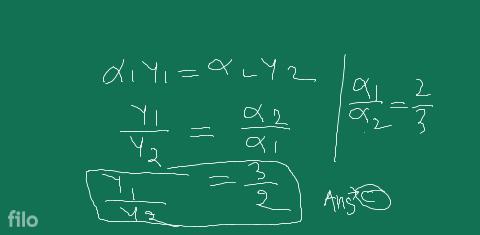 α₁Y₁ = α₂Y₂
Y₁/Y₂ = α₂/α₁
Y₁/Y₂ = 3/2
α₁/α₂ = 2/3
Ans
filo